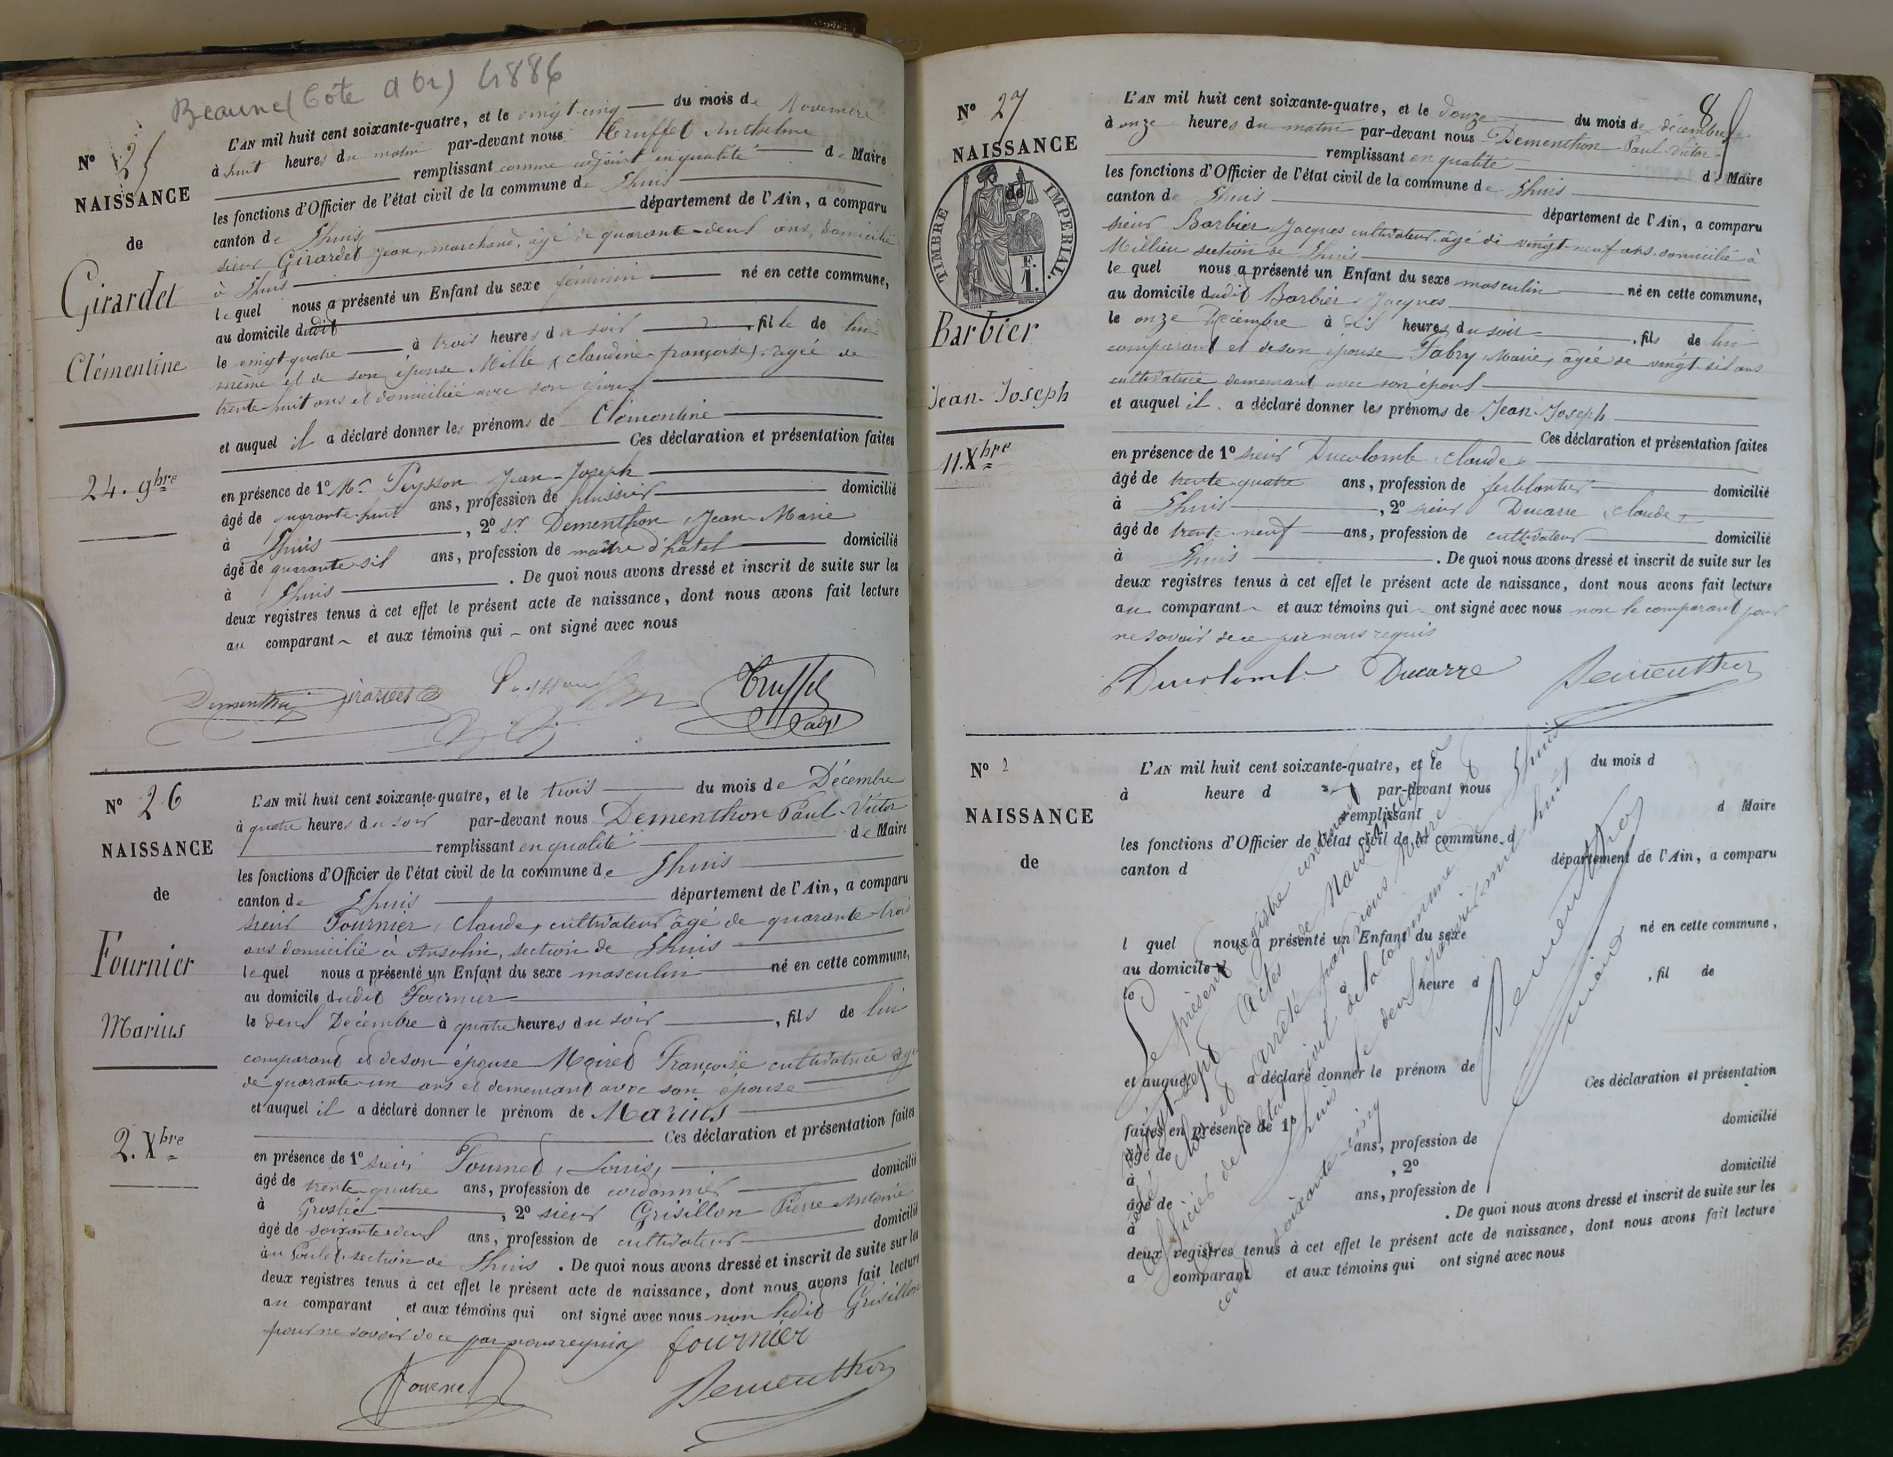 Beaune (Côte d'Or) 1886
N° 25
NAISSANCE
de
Girardet
Clémentine
24. 9bre
L'AN mil huit cent soixante-quatre, et le vingt-cinq du mois de Novembre
à huit heures du matin par-devant nous Truffet Anthelme
remplissant comme adjoint en qualité de Maire
les fonctions d'Officier de l'état civil de la commune de Lhuis
canton de Lhuis département de l'Ain, a comparu
sieur Girardet Jean, marchand, âgé de quarante-deux ans, domicilié
à Lhuis
lequel nous a présenté un Enfant du sexe féminin né en cette commune,
au domicile dudit
le vingt quatre à trois heures du soir, fille de lui
même et de son épouse Mille (Claudine françoise) âgée de
trente huit ans et domiciliée avec son époux
et auquel il a déclaré donner les prénoms de Clémentine
Ces déclaration et présentation faites
en présence de 1° Mr Peysson Jean-Joseph
âgé de quarante huit ans, profession de huissier domicilié
à Lhuis, 2° Sr Dementhon Jean-Marie
âgé de quarante-six ans, profession de maître d'hôtel domicilié
à Lhuis. De quoi nous avons dressé et inscrit de suite sur les
deux registres tenus à cet effet le présent acte de naissance, dont nous avons fait lecture
au comparant et aux témoins qui ont signé avec nous
Dementhon Girardet Truffet
adjt
N° 26
NAISSANCE
de
Fournier
Marius
2. Xbre
L'AN mil huit cent soixante-quatre, et le trois du mois de Décembre
à quatre heures du soir par-devant nous Dementhon Paul-Victor
remplissant en qualité de Maire
les fonctions d'Officier de l'état civil de la commune de Lhuis
canton de Lhuis département de l'Ain, a comparu
sieur Fournier, Claude, cultivateur âgé de quarante-trois
ans domicilié à Ansolin, section de Lhuis
lequel nous a présenté un Enfant du sexe masculin né en cette commune,
au domicile dudit Fournier
le deux Décembre à quatre heures du soir, fils de lui
comparant et de son épouse Moiret Françoise cultivatrice âgée
de quarante-un ans et demeurant avec son épouse
et auquel il a déclaré donner le prénom de Marius
Ces déclaration et présentation faites
en présence de 1° sieur Tournet, Louis,
âgé de trente-quatre ans, profession de cordonnier domicilié
à Groslée, 2° sieur Grisillon Pierre Antoine
âgé de soixante-deux ans, profession de cultivateur domicilié
au Poulet, section de Lhuis. De quoi nous avons dressé et inscrit de suite sur les
deux registres tenus à cet effet le présent acte de naissance, dont nous avons fait lecture
au comparant et aux témoins qui ont signé avec nous non ledit Grisillon
pour ne savoir de ce par nous requis fournier
Tournet Dementhon
8
N° 27
NAISSANCE
de
TIMBRE IMPERIAL.
F.
1.
Barbier
Jean-Joseph
11. Xbre
L'AN mil huit cent soixante-quatre, et le douze du mois de décembre
à onze heures du matin par-devant nous Dementhon Paul-Victor
remplissant en qualité de Maire
les fonctions d'Officier de l'état civil de la commune de Lhuis
canton de Lhuis département de l'Ain, a comparu
sieur Barbier Jacques cultivateur âgé de vingt-neuf ans domicilié à
Millieu section de Lhuis
lequel nous a présenté un Enfant du sexe masculin né en cette commune,
au domicile dudit Barbier Jacques
le onze Décembre à dix heures du soir, fils de lui
comparant et de son épouse Fabry Marie, âgée de vingt-six ans
cultivatrice demeurant avec son époux
et auquel il a déclaré donner les prénoms de Jean-Joseph
Ces déclaration et présentation faites
en présence de 1° sieur Ducolomb Claude
âgé de trente-quatre ans, profession de ferblantier domicilié
à Lhuis, 2° sieur Ducarre Claude
âgé de trente-neuf ans, profession de cultivateur domicilié
à Lhuis. De quoi nous avons dressé et inscrit de suite sur les
deux registres tenus à cet effet le présent acte de naissance, dont nous avons fait lecture
au comparant et aux témoins qui ont signé avec nous non le comparant pour
ne savoir de ce par nous requis
Ducolomb Ducarre Dementhon
N° 2
NAISSANCE
de
L'AN mil huit cent soixante-quatre, et le du mois d
à heure d par-devant nous
remplissant d Maire
les fonctions d'Officier de l'état civil de la commune d
canton d département de l'Ain, a comparu
l quel nous a présenté un Enfant du sexe né en cette commune,
au domicile
le à heure d , fil de
et auquel a déclaré donner le prénom de
Ces déclaration et présentation
faites en présence de 1°
âgé de ans, profession de domicilié
à , 2°
âgé de ans, profession de domicilié
à . De quoi nous avons dressé et inscrit de suite sur les
deux registres tenus à cet effet le présent acte de naissance, dont nous avons fait lecture
a comparant et aux témoins qui ont signé avec nous
Le présent registre contenant
vingt-sept actes de Naissance
a été clos et arrêté par nous Maire
officier de l'état civil de la commune de Lhuis
à Lhuis le deux Janvier mil huit
cent soixante-cinq
Dementhon
maire